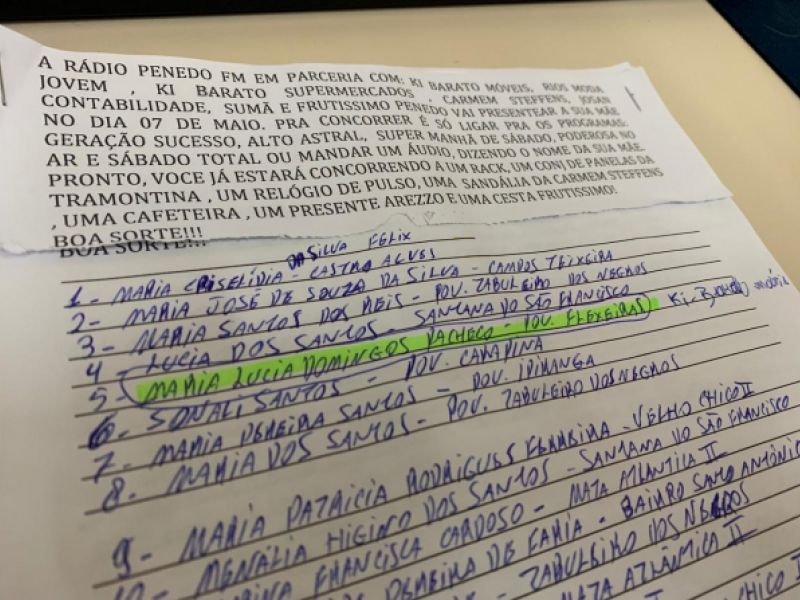 A RÁDIO PENEDO FM EM PARCERIA COM: KI BARATO MÓVEIS, RIOS MODA
JOVEM , KI BARATO SUPERMERCADOS , CARMEM STEFFENS, JOSAN
CONTABILIDADE, SUMÃ E FRUTISSIMO PENEDO VAI PRESENTEAR A SUA MÃE
NO DIA 07 DE MAIO. PRA CONCORRER É SÓ LIGAR PRA OS PROGRAMAS:
GERAÇÃO SUCESSO, ALTO ASTRAL, SUPER MANHÃ DE SÁBADO, PODEROSA NO
AR E SÁBADO TOTAL OU MANDAR UM ÁUDIO, DIZENDO O NOME DA SUA MÃE.
PRONTO, VOCE JÁ ESTARÁ CONCORRENDO A UM RACK, UM CONJ DE PANELAS DA
TRAMONTINA , UM RELÓGIO DE PULSO, UMA SANDÁLIA DA CARMEM STEFFENS
, UMA CAFETEIRA , UM PRESENTE AREZZO E UMA CESTA FRUTISSIMO!
BOA SORTE!!!
BOA SORTE!!!
DA SILVA FÉLIX
1 - MARIA CRISELÍDIA - CASTRO ALVES
2 - MARIA JOSÉ DE SOUZA DA SILVA - CAMPOS TEIXEIRA
3 - MARIA SANTOS DOS REIS - POV. TABULEIRO DOS NEGROS
4 - LUCIA DOS SANTOS - SANTANA DO SÃO FRANCISCO
5 - MARIA LUCIA DOMINGOS PACHECO - POV. FLEXEIRAS KI-BARATO
6 - SONALI SANTOS - POV. CAPAPINA
7 - MARIA PEREIRA SANTOS - POV. IPIRANGA
8 - MARIA DOS SANTOS - POV. TABULEIRO DOS NEGROS
9 - MARIA PATRICIA RODRIGUES FERREIRA - VELHO CHICO II
10 - MENALIA HIGINO DOS SANTOS - SANTANA DO SÃO FRANCISCO
FRANCISCA CARDOSO - MATA ATLANTICA II
PEREIRA DE FARIA - BAIRRO SANTO ANTÔNIO
TABULEIRO DOS NEGROS
MATA ATLÂMTICA II
CHICO II